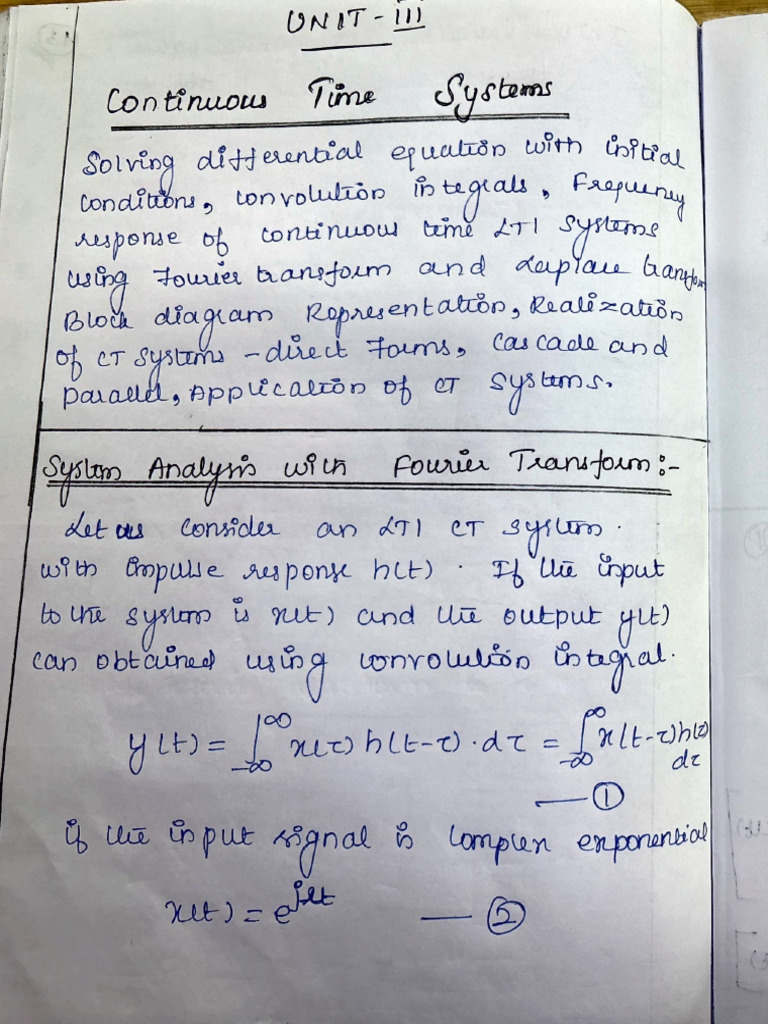 UNIT - III
Continuous Time Systems
Solving differential equation with initial
conditions, convolution integrals, Frequency
response of continuous time LTI systems
using Fourier transform and Laplace transform
Block diagram Representation, Realization
of CT systems - direct forms, cascade and
parallel, Application of CT systems.
System Analysis with Fourier Transform :-
Let us consider an LTI CT system.
with impulse response h(t). If the input
to the system is x(t) and the output y(t)
can obtained using convolution integral.
y(t) = ∫_{-∞}^{∞} x(τ) h(t-τ) · dτ = ∫_{-∞}^{∞} x(t-τ) h(τ)
dτ
— ①
if the input signal is complex exponential
x(t) = e^{jΩt} — ②